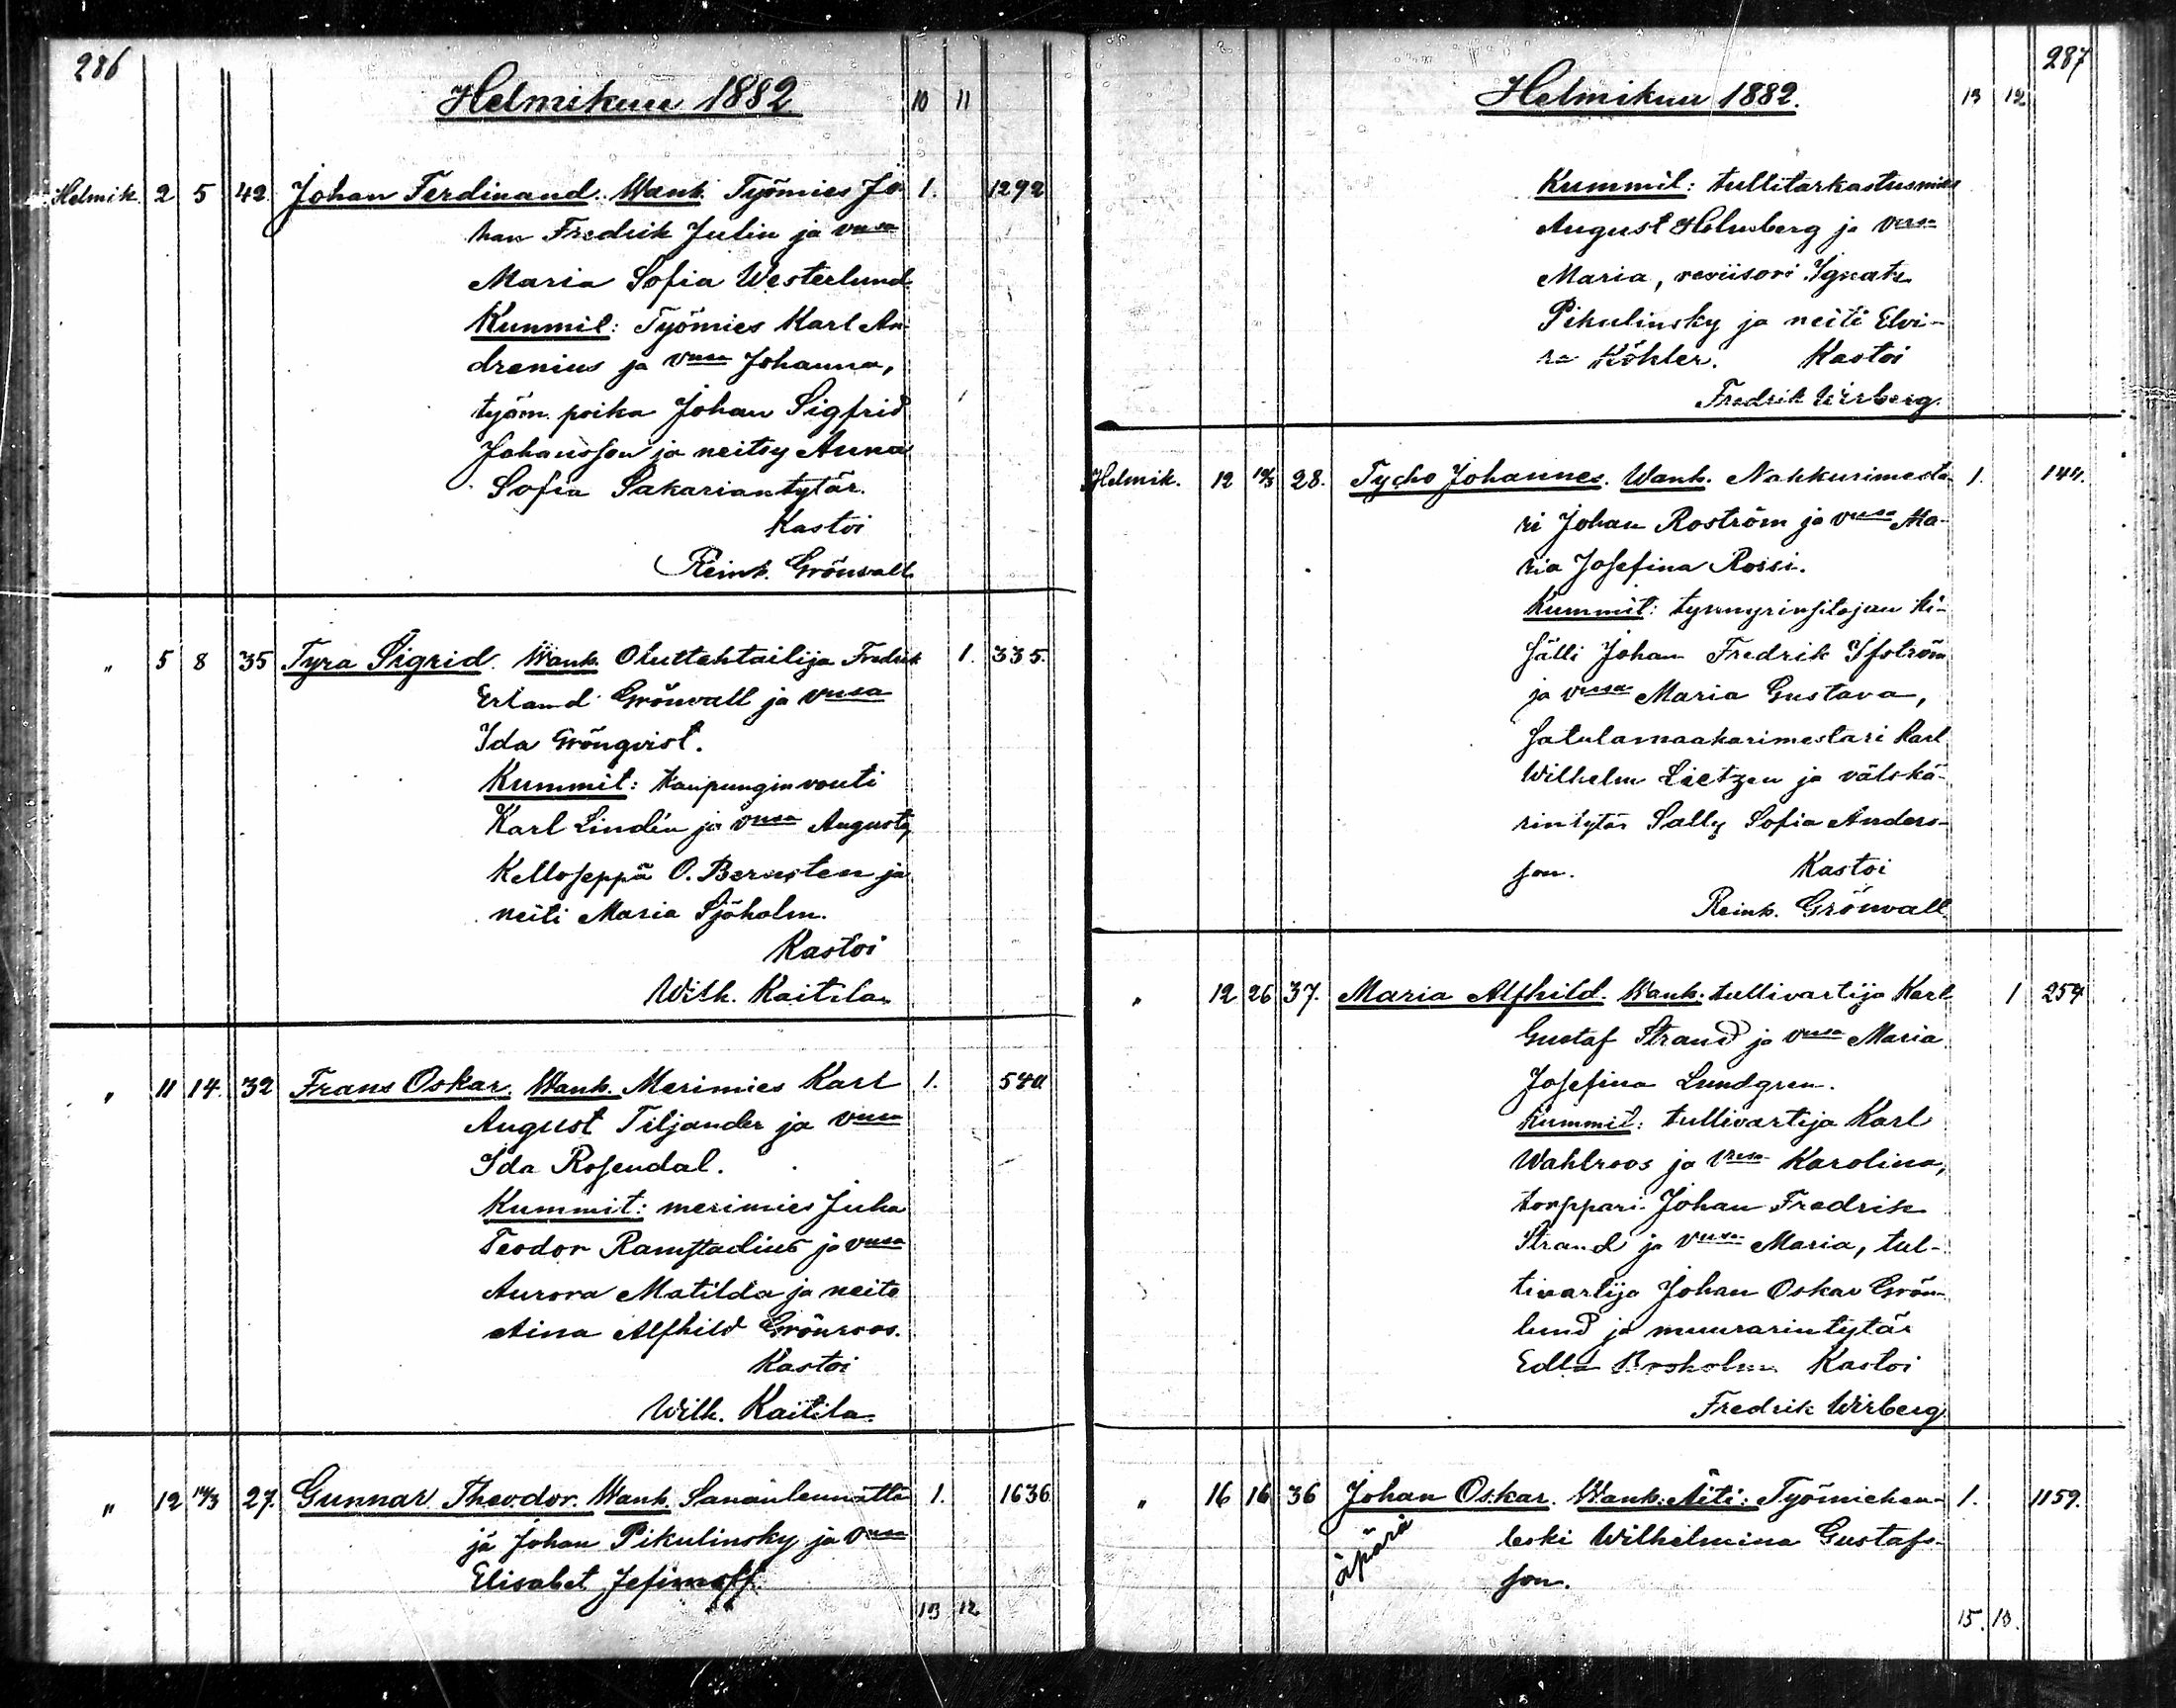 286
Helmikuu 1882 10 11
Helmik. 2 5 42. Johan Ferdinand. Wanh. Työmies Jo- 1. 1292
han Fredrik Julin ja vmsa
Maria Sofia Westerlund.
Kummit: Työmies Karl An-
drenius ja vmsa Johanna,
työm. poika Johan Sigfrid
Johansson ja neitsy Anna
Sofia Sakariantytär.
Kastoi
Reinh. Grönvall
" 5 8 35 Tyra Sigrid. Wanh. Oluttehtailija Fredrik 1. 335.
Erland Grönvall ja vmsa
Ida Grönqvist.
Kummit: Kaupunginvouti
Karl Lindén ja vmsa Augusta,
Kelloseppä O. Bernsten ja
neiti Maria Sjöholm.
Kastoi
Wilh. Kaitila
" 11 14. 32 Frans Oskar. Wanh. Merimies Karl 1. 540
August Tiljander ja vmsa
Ida Rosendal.
Kummit: merimies Juha
Teodor Ramstadius ja vmsa
Aurora Matilda ja neito
Aina Alfhild Grönroos.
Kastoi
Wilh. Kaitila.
" 12 14/3 27. Gunnar Theodor. Wanh. Sanänlennättä- 1. 1636
jä Johan Pikulinsky ja vmsa
Elisabet Jefimoff.
13 12
287
Helmikuu 1882. 13 12
Kummit: tullitarkastusmies
August Holmberg ja vmsa
Maria, reviisori Ignats
Pikulinsky ja neiti Elvi-
ra Köhler. Kastoi
Fredrik Wirberg.
Helmik. 12 28. Tycho Johannes. Wanh. Nahkurimesta- 1. 144.
ri Johan Roström ja vmsa Ma-
ria Josefina Rossi.
Kummit: tynnyrinsitojan ki-
sälli Johan Fredrik Ifström
ja vmsa Maria Gustava,
satulamaakarimestari Karl
Wilhelm Lietzen ja välskä-
rintytär Sally Sofia Anders-
son. Kastoi
Reinh. Grönvall.
" 12 26 37. Maria Alfhild. Wanh. tullivartija Karl 1 254
Gustaf Strand ja vmsa Maria
Josefina Lundgren.
Kummit: tullivartija Karl
Wahlroos ja vmsa Karolina,
torppari Johan Fredrik
Strand ja vmsa Maria, tul-
livartija Johan Oskar Grön-
lund ja muurarintytär
Edla Boxholm Kastoi
Fredrik Wirberg.
" 16 16 36 Johan Oskar. Wanh. Äiti: Työmiehen- 1. 1159.
äpärä leski Wilhelmina Gustafs-
son.
15. 13.